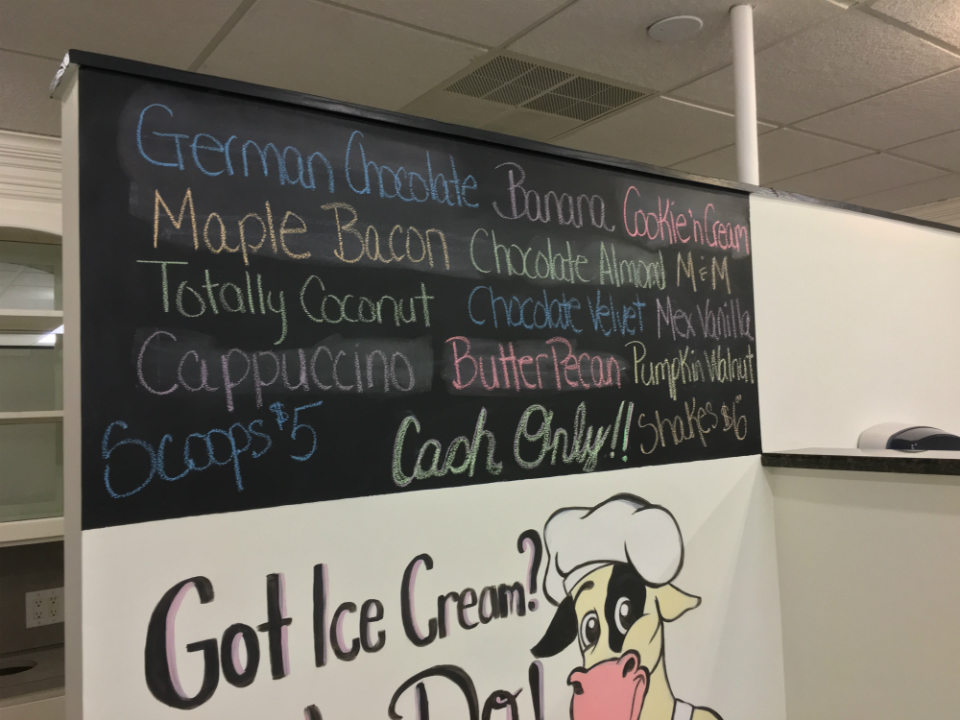 German Chocolate Banana Cookie'n Cream
Maple Bacon Chocolate Almond M&M
Totally Coconut Chocolate Velvet Mex Vanilla
Cappuccino Butter Pecan Pumpkin Walnut
Scoops $5 Cash Only!! Shakes $6
Got Ice Cream?
Do!